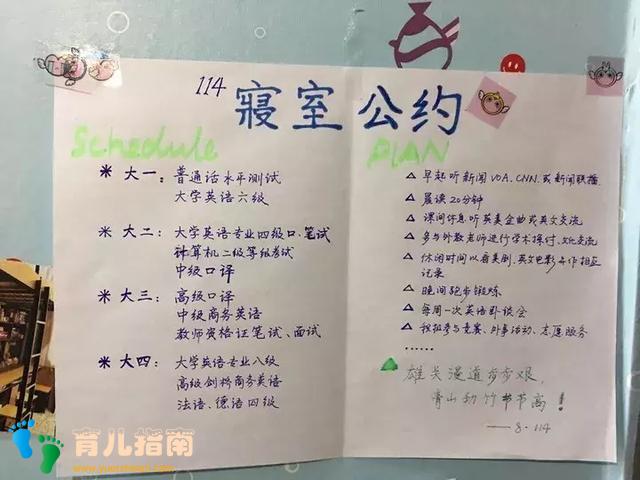 114 寝室公约
Schedule
※ 大一: 普通话水平测试
大学英语六级
※ 大二: 大学英语专业四级口、笔试
计算机二级等级考试
中级口译
※ 大三: 高级口译
中级商务英语
教师资格证笔试、面试
※ 大四: 大学英语专业八级
高级剑桥商务英语
法语、德语四级
PLAN
△ 早起听新闻 VOA、CNN、或新闻联播
△ 晨读20分钟
△ 课间休息听英美金曲或英文交流
△ 多与外教老师进行学术探讨、文化交流
△ 休闲时间以看美剧、英文电影与作相应
记录
△ 晚间跑步锻炼
△ 每周一次英语卧谈会
△ 积极参与竞赛、外事活动、志愿服务
......
雄关漫道步步艰,
青山劲竹节节高!
—— 8·114
育儿指南